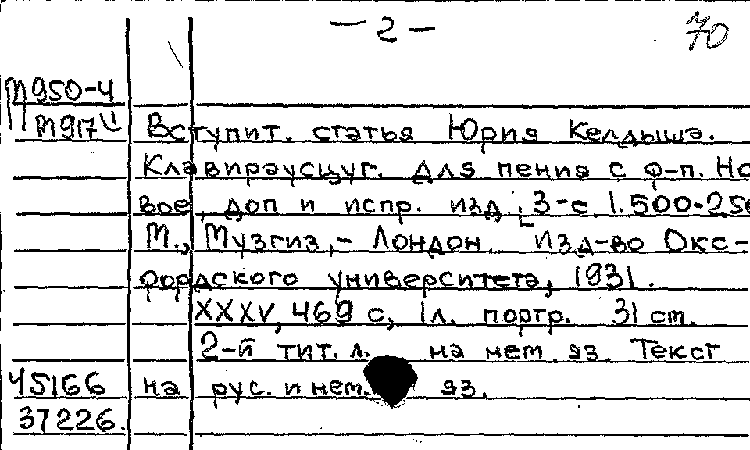 — 2 —
70
М950-4
М917
Вступит. статья Юрия Келдыша.
Клавираусцуг. Для пения с ф-п. Но
вое, доп и испр. изд. 3-е 1.500.250
М., Музгиз, - Лондон. Изд-во Окс-
фордского университета, 1931.
XXXV, 469 с, 1л. портр. 31 см.
2-й тит. л. на нем. яз. Текст
45166 на рус. и нем. яз.
37226.